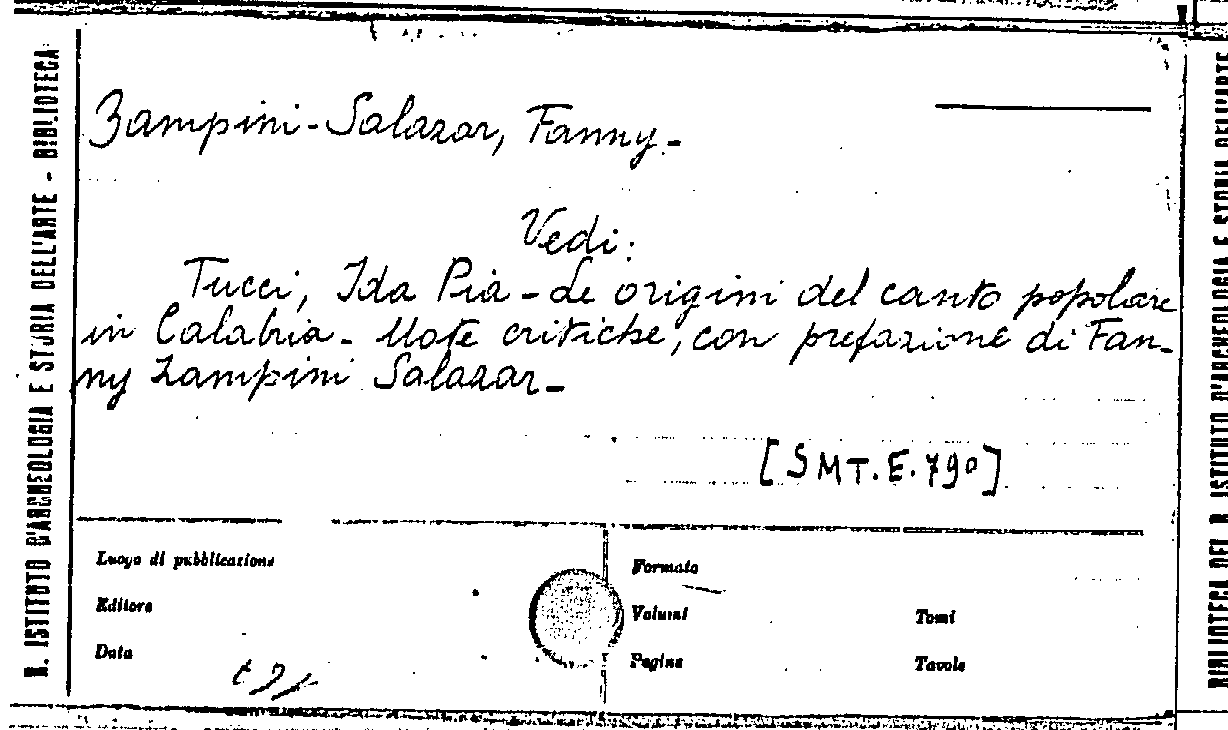 R. ISTITUTO D'ARCHEOLOGIA E STORIA DELL'ARTE - BIBLIOTECA
Zampini-Salazar, Fanny.-
Vedi:
Tucci, Ida Pia - Le origini del canto popolare
in Calabria - Note critiche, con prefazione di Fan-
ny Zampini Salazar -
[SMT.E.790]
Luogo di pubblicazione
Editore
Data
Formato
Volumi
Tomi
Pagine
Tavole
BIBLIOTECA DEL R. ISTITUTO D'ARCHEOLOGIA E STORIA DELL'ARTE